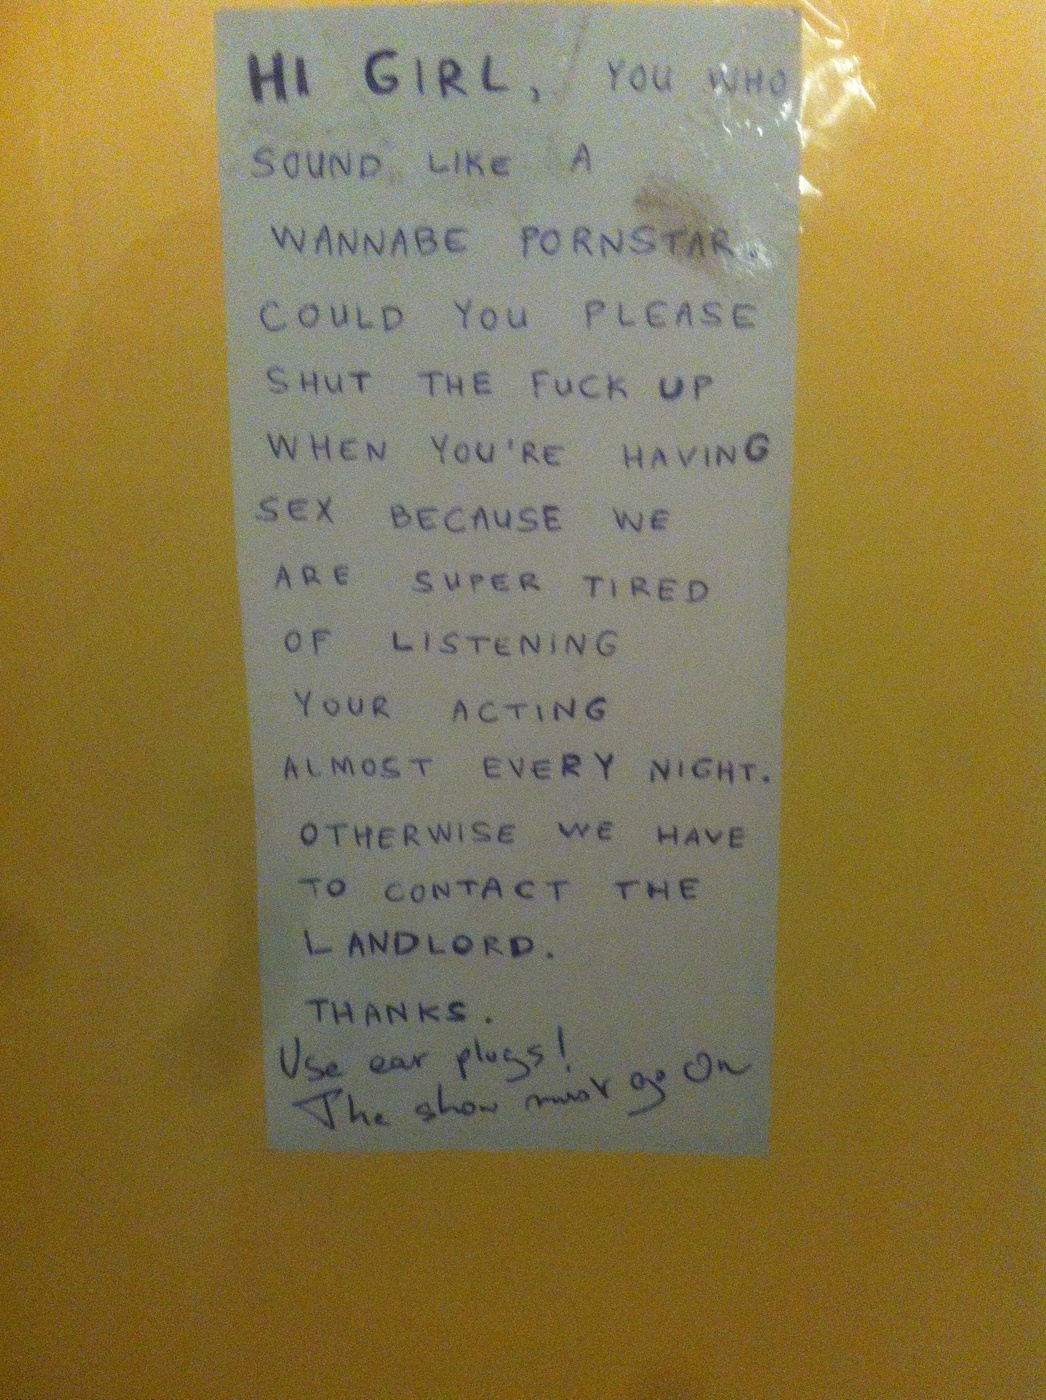 HI GIRL, YOU WHO
SOUND LIKE A
WANNABE PORNSTAR.
COULD YOU PLEASE
SHUT THE FUCK UP
WHEN YOU'RE HAVING
SEX BECAUSE WE
ARE SUPER TIRED
OF LISTENING
YOUR ACTING
ALMOST EVERY NIGHT.
OTHERWISE WE HAVE
TO CONTACT THE
LANDLORD.
THANKS.
Use ear plugs!
The show must go On